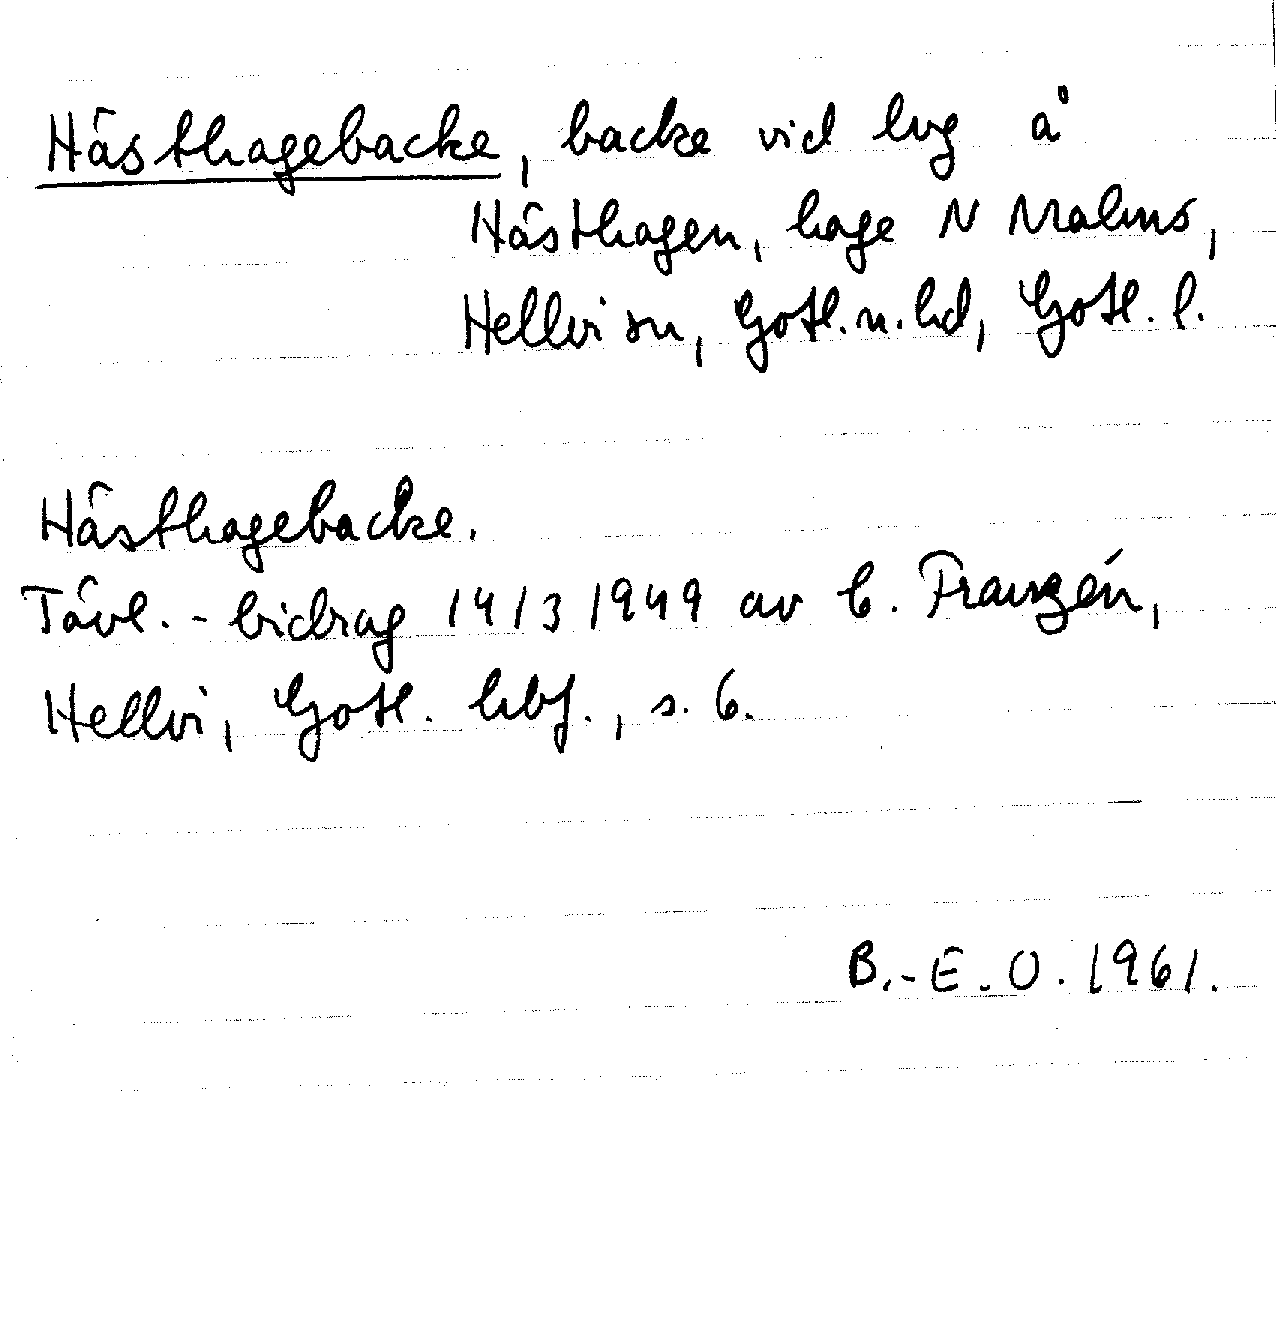 Hästhagebacke, backe vid lvg å
Hästhagen, hage N Malms,
Hellvi sn, Gotl. n. hd, Gotl. l.
Hästhagebacke.
Tävl.-bidrag 14/3 1949 av C. Franzén,
Hellvi, Gotl. hbf., s. 6.
B.-E. O. 1961.